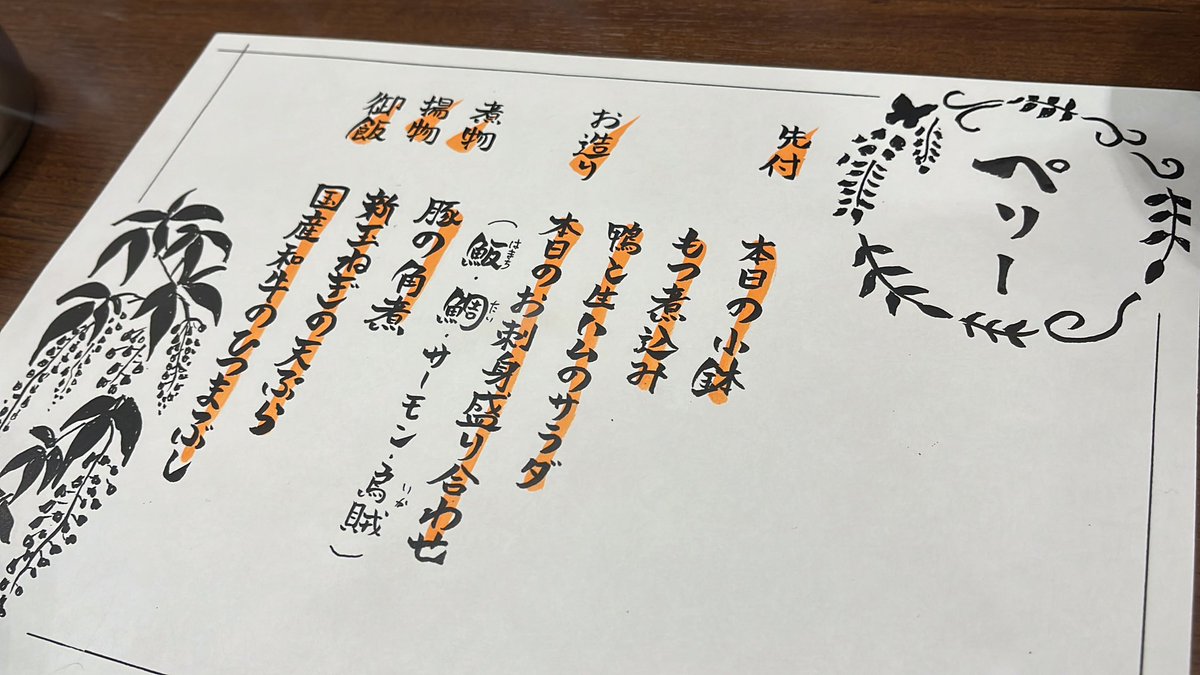 ペリー
先付
本日の小鉢
もつ煮込み
鴨と生ハムのサラダ
お造り
本日のお刺身盛り合わせ
(鰤はまち・鯛たい・サーモン・烏賊いか)
煮物
豚の角煮
揚物
新玉ねぎの天ぷら
御飯
国産和牛のひつまぶし